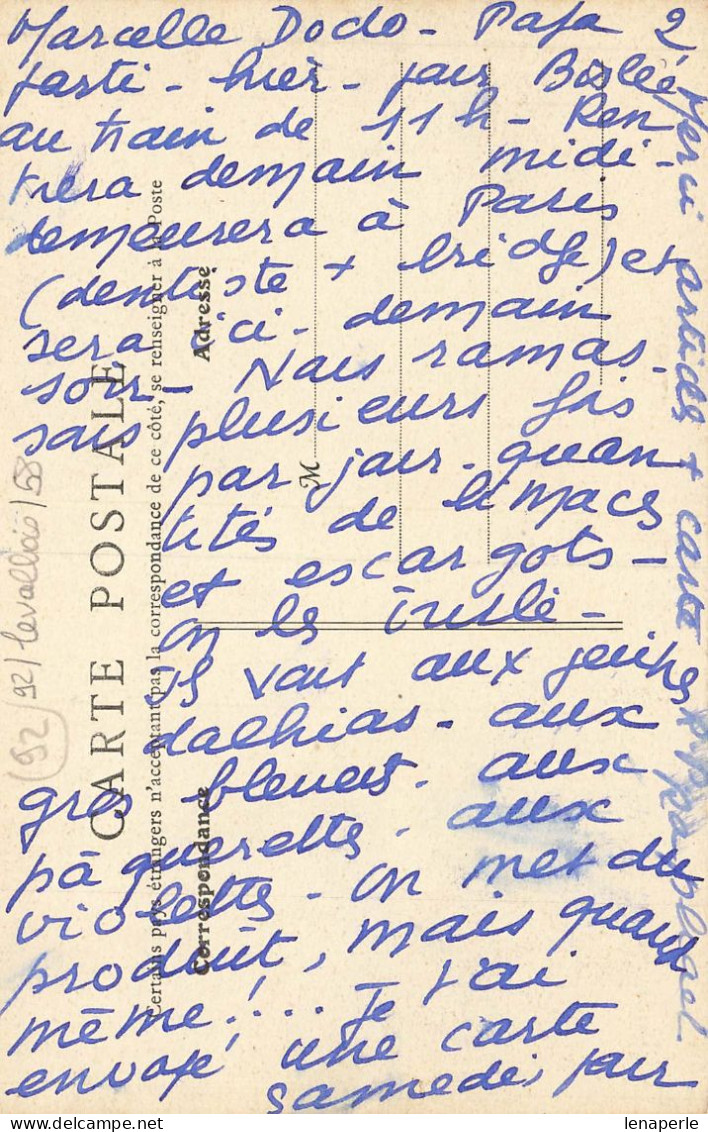 Marcelle Dodo - Papa 2
parti - hier - par
au train de 11h - Ren
trera demain midi -
demeurera à Paris
(dentiste + bridge) et
sera ici - demain
soir - Nous ramas-
sons plusieurs fois
par jour - quan
tités de limaces
et escargots -
On les brûle -
Ils vont aux jeunes
dalhias - aux
gros bleuets - aux
pâquerettes - aux
violettes - On met du
produit, mais quand
même! ... Je t'ai
envoyé une carte
samedi, pour
Merci articles + carte
CARTE POSTALE
Certains pays étrangers n'acceptant pas la correspondance de ce côté, se renseigner à la Poste
Correspondance
Adresse
M
(92) /92/ Levallois / 58
lenaperle